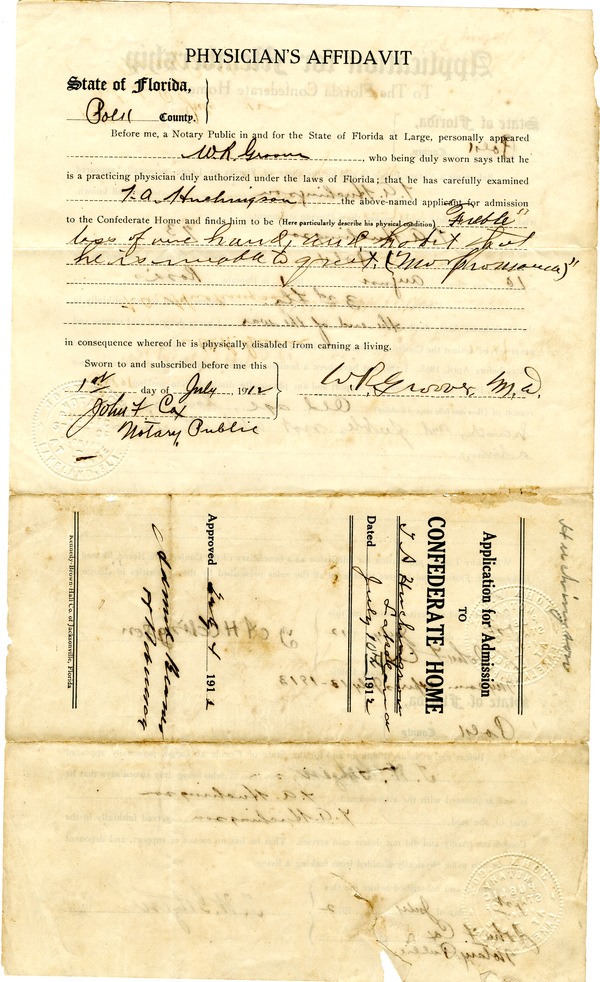 PHYSICIAN'S AFFIDAVIT
State of Florida,
Polk County.
Before me, a Notary Public in and for the State of Florida at Large, personally appeared
W R Groover, who being duly sworn says that he
is a practicing physician duly authorized under the laws of Florida; that he has carefully examined
T. A. Huchingson the above-named applicant for admission
to the Confederate Home and finds him to be (Here particularly describe his physical condition) Feeble"
loss of one hand,
he is unable to
in consequence whereof he is physically disabled from earning a living.
Sworn to and subscribed before me this
1st day of July, 1912
W. R. Groover, M.D.
John F. Cox
Notary Public
Huchingson
Application for Admission
TO
CONFEDERATE HOME
T A Huchingson
Lakeland
Dated July 10th 1912
Approved July 4 1912
Kennedy-Brown-Hall Co. of Jacksonville, Florida